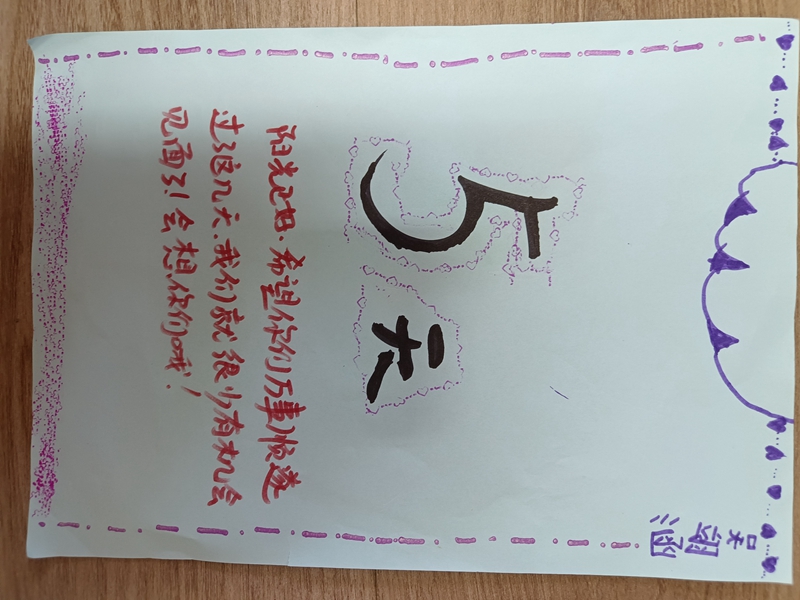 吴翊涵
5天
阳光正好.希望你们万事顺遂
过这几天.我们就很少有机会
见面了!会想你们哦!